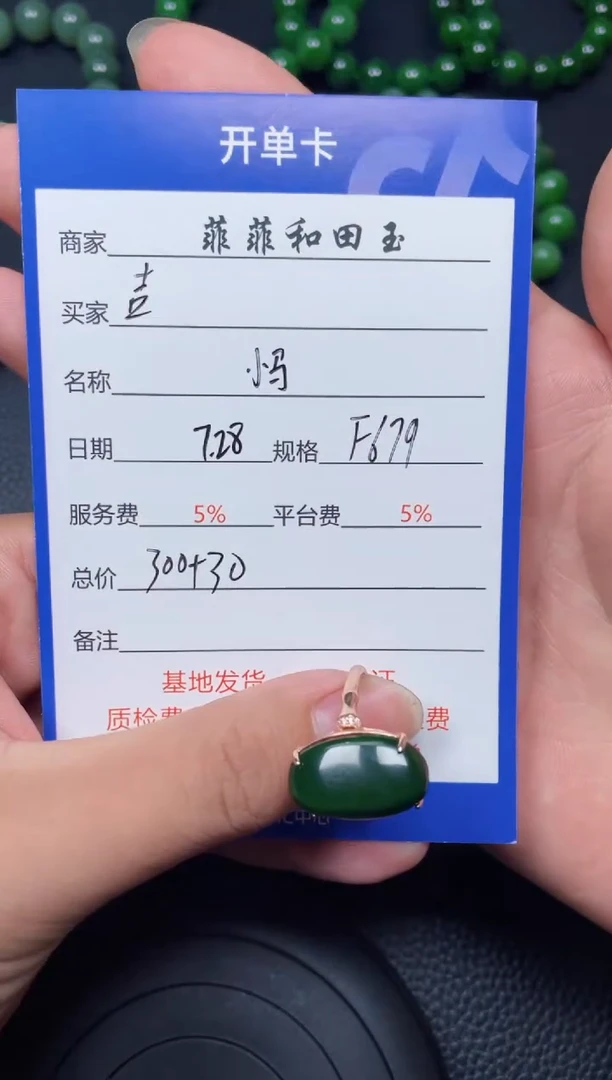 开单卡
商家 菲菲和田玉
买家 吉
名称 小玛
日期 7.28 规格 F679
服务费 5% 平台费 5%
总价 300+30
备注
基地发货 证
质检费 费
中心